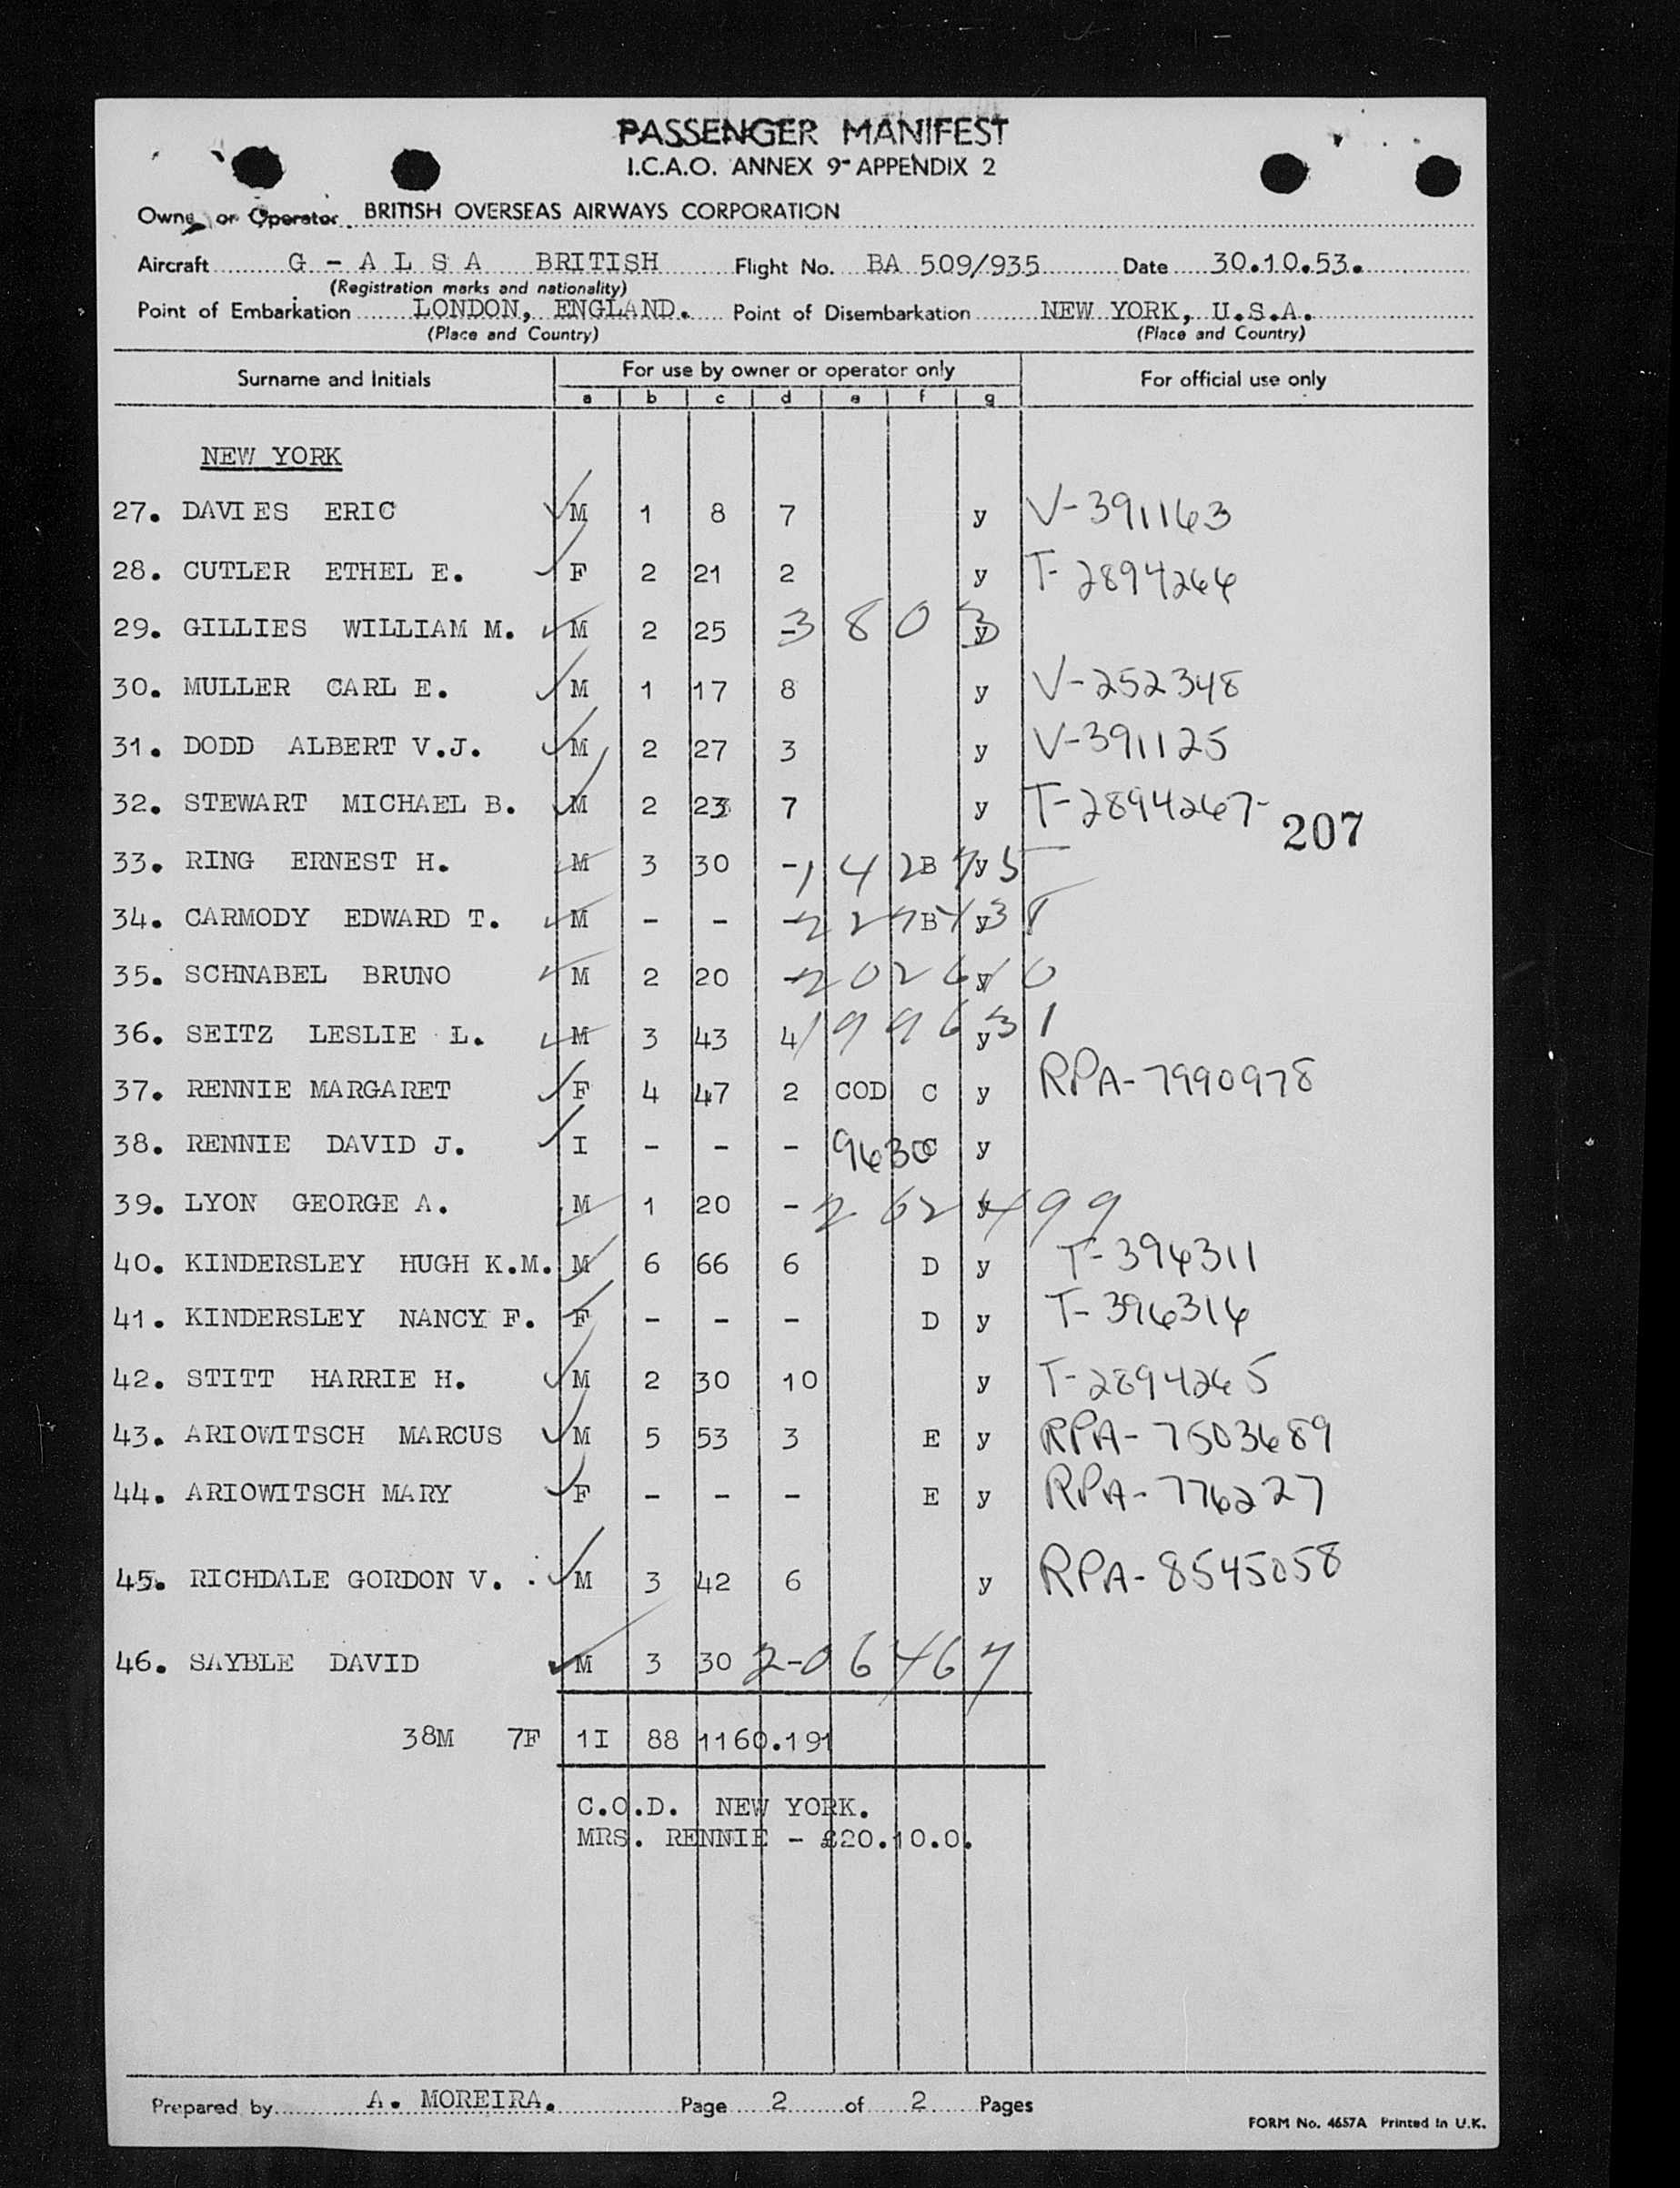 PASSENGER MANIFEST
I.C.A.O. ANNEX 9-APPENDIX 2
Owner or Operator BRITISH OVERSEAS AIRWAYS CORPORATION
Aircraft G - A L S A BRITISH Flight No. BA 509/935 Date 30.10.53.
(Registration marks and nationality)
Point of Embarkation LONDON, ENGLAND. Point of Disembarkation NEW YORK, U.S.A.
(Place and Country) (Place and Country)
Surname and Initials For use by owner or operator only For official use only
a b c d e f g
NEW YORK
27. DAVIES ERIC M 1 8 7 y V-391163
28. CUTLER ETHEL E. F 2 21 2 y T-2894266
29. GILLIES WILLIAM M. M 2 25 - y 3803
30. MULLER CARL E. M 1 17 8 y V-252348
31. DODD ALBERT V.J. M 2 27 3 y V-391125
32. STEWART MICHAEL B. M 2 23 7 y T-2894267-
207
33. RING ERNEST H. M 3 30 - B y
34. CARMODY EDWARD T. M - - - B y
35. SCHNABEL BRUNO M 2 20 - y
36. SEITZ LESLIE L. M 3 43 4 y 199631
37. RENNIE MARGARET F 4 47 2 COD C y RPA-7990978
38. RENNIE DAVID J. I - - - 9630 C y
39. LYON GEORGE A. M 1 20 - y 262499
40. KINDERSLEY HUGH K.M. M 6 66 6 D y T-396311
41. KINDERSLEY NANCY F. F - - - D y T-396316
42. STITT HARRIE H. M 2 30 10 y T-2894265
43. ARIOWITSCH MARCUS M 5 53 3 E y RPA-7503689
44. ARIOWITSCH MARY F - - - E y RPA-776227
45. RICHDALE GORDON V. M 3 42 6 y RPA-8545058
46. SAYBLE DAVID M 3 30 2-06467
38M 7F 1I 88 1160.191
C.O.D. NEW YORK.
MRS. RENNIE - £20.10.0.
Prepared by A. MOREIRA. Page 2 of 2 Pages
FORM No. 4657A Printed in U.K.